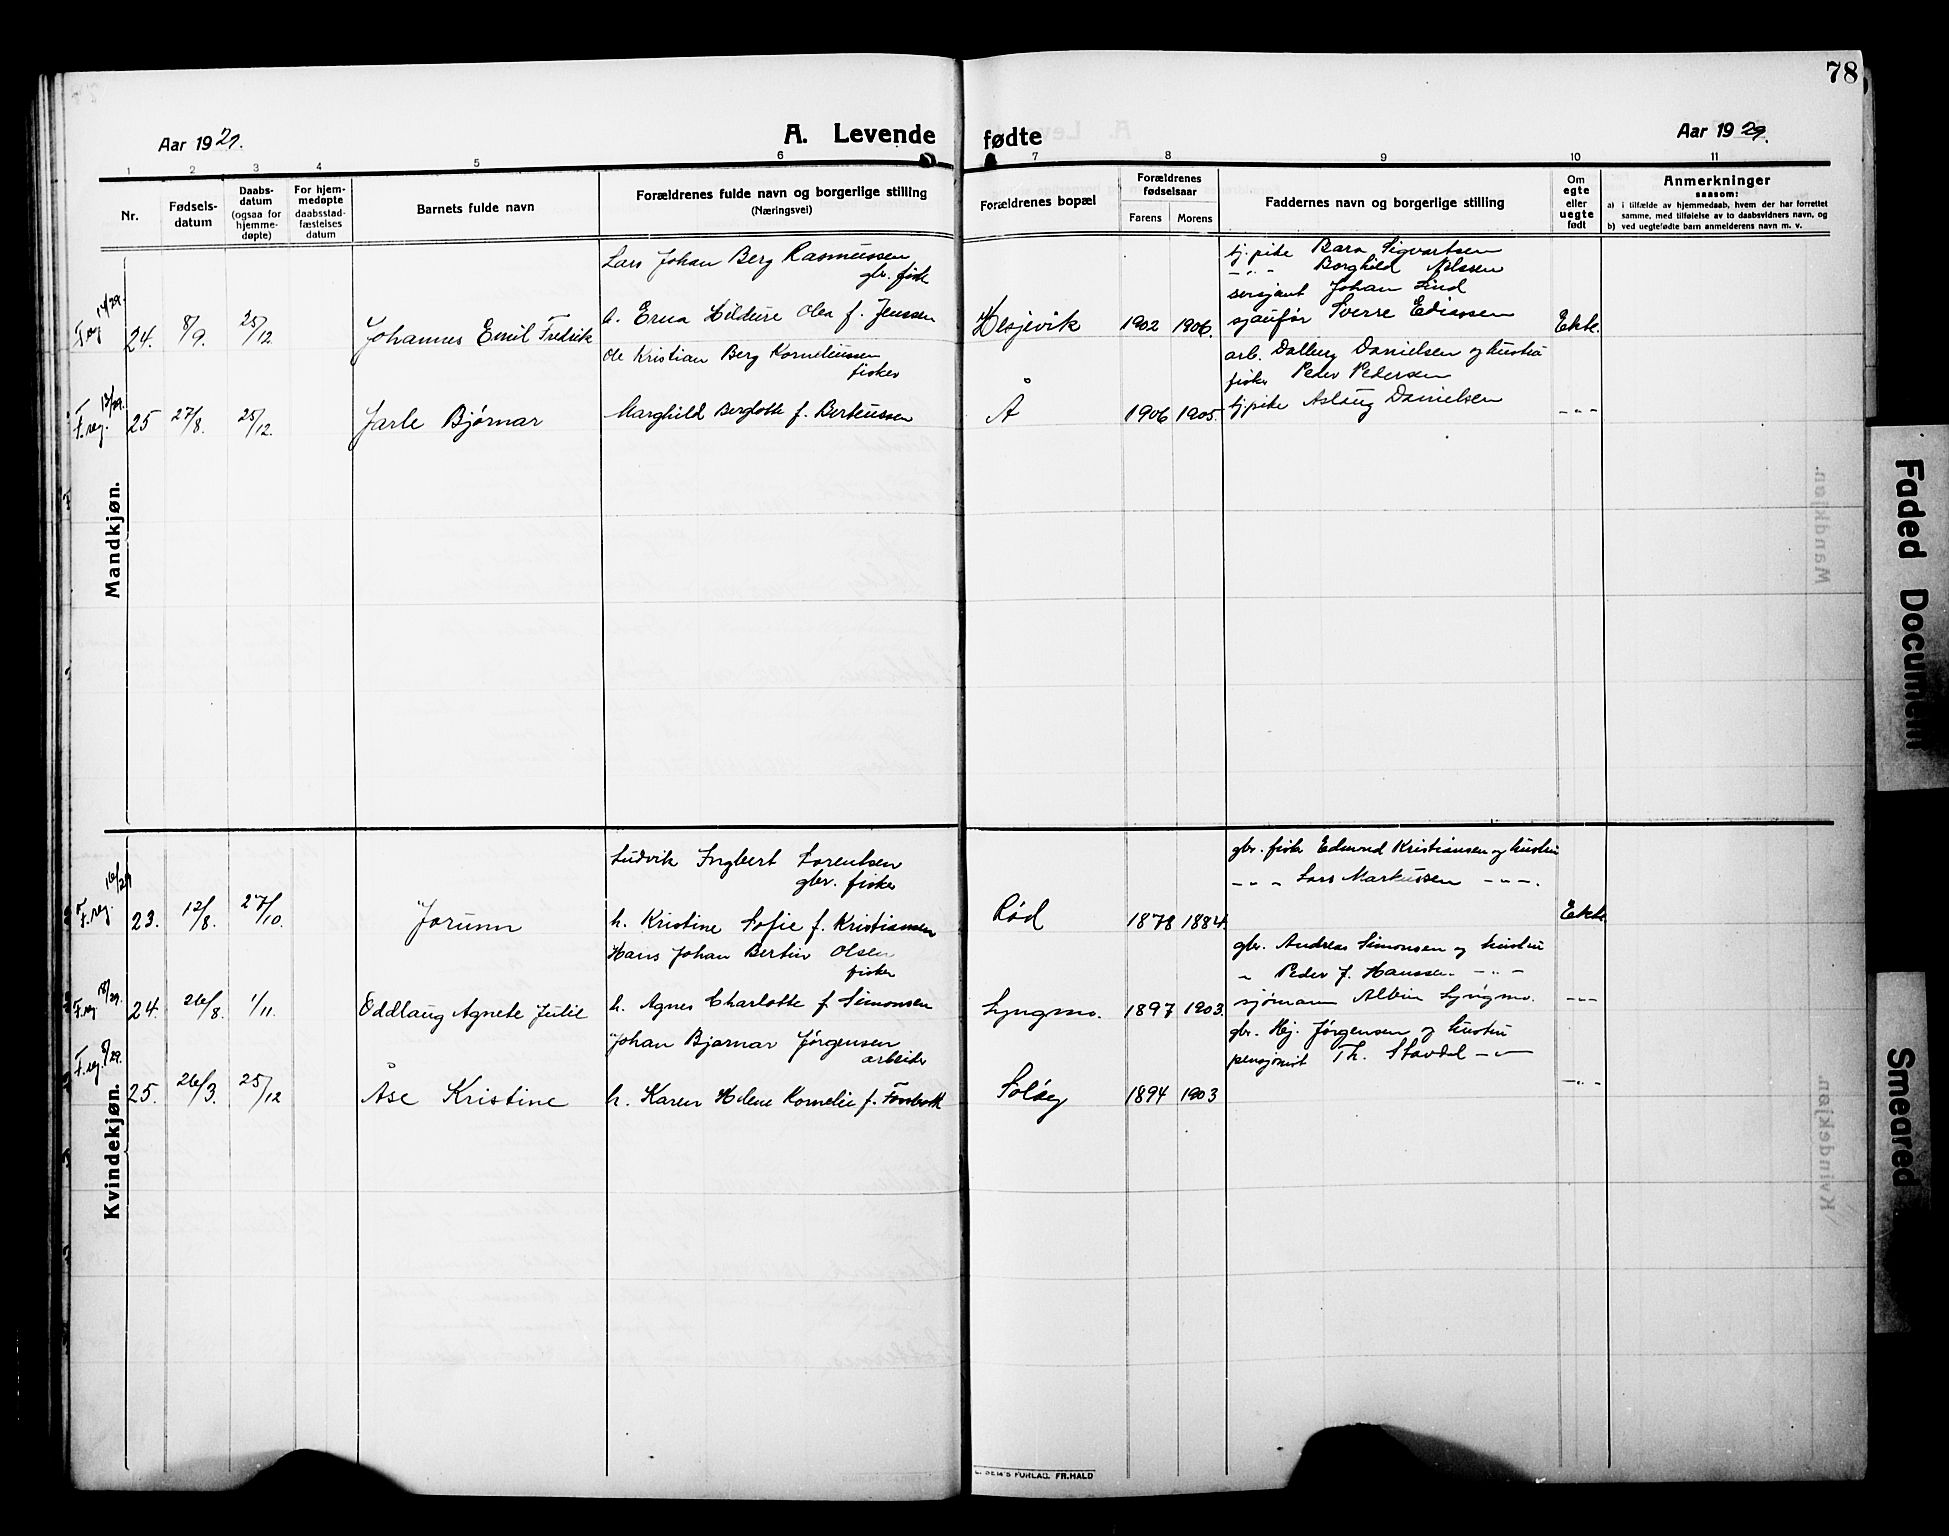 78
Aar 1929.
A. Levende fødte
Aar 1929.
1 2 3 4 5 6 7 8 9 10 11
Nr.
Fødsels-
datum
Daabs-
datum
(ogsaa for
hjemme-
døpte)
For hjem-
medøpte
daabsstad-
fæstelses
datum
Barnets fulde navn
Forældrenes fulde navn og borgerlige stilling
(Næringsvei)
Forældrenes bopæl
Forældrenes
fødselsaar
Farens Morens
Faddernes navn og borgerlige stilling
Om
egte
eller
uegte
født
Anmerkninger
saasom:
a) i tilfælde av hjemmedaab, hvem der har forrettet
samme, med tilføielse av to daabsvidners navn, og
b) ved uegtefødte barn anmelderens navn m. v.
Mandkjøn.
F.reg. 14/29.
24. 8/9. 25/12 Johannes Emil Fredrik
Lars Johan Berg Rasmussen
gbr. fisk
h. Erna Hildure Olea f. Jenssen
Hesjevik 1902 1906.
tj. pike Bara Sigvartsen
— " — Borghild Nilssen
sersjant Johan Lind
sjaufør Sverre Ediassen
Ekte.
F.reg. 13/29.
25 27/8. 25/12. Jarle Bjørnar
Ole Kristian Berg Korneliussen
fisker
Marghild Berglotte f. Berteussen
Å 1906 1905.
arb. Dalberg Danielsen og hustru
fisker Peder Pedersen
tj.pike Aslaug Danielsen
— " —
Kvindekjøn.
F.reg. 16/29
23. 12/8. 27/10. Jorunn
Ludvik Ingbert Lorentsen
gbr. fisker
h. Kristine Sofie f. Kristiansen
Rød 1878 1884.
gbr. fisker Edmund Kristiansen og hustru
— " — Lars Markussen — " —.
Ekte
F.reg. 18/29.
24. 26/8. 1/11. Oddlaug Agnete Julie
Hans Johan Bertin Olsen
fisker
h. Agnes Charlotte f. Simonsen
Lyngmo. 1897 1903.
gbr. Andreas Simonsen og hustru
" Peder J. Hanssen — " —
sjømann Albin Lyngmo.
— " —
F.reg. 8/29.
25. 26/3. 25/12 Åse Kristine
Johan Bjarnar Jørgensen
arbeider
h. Karen Helene Kornelie f.
Soløy 1894 1903
gbr. Hj. Jørgensen og hustru
pensjonist Th. Stavdal — " —
— " —
SEM'S FORLAG. FR.HALD
Mandkjøn.
Kvindekjøn.
Faded Document
Smeared